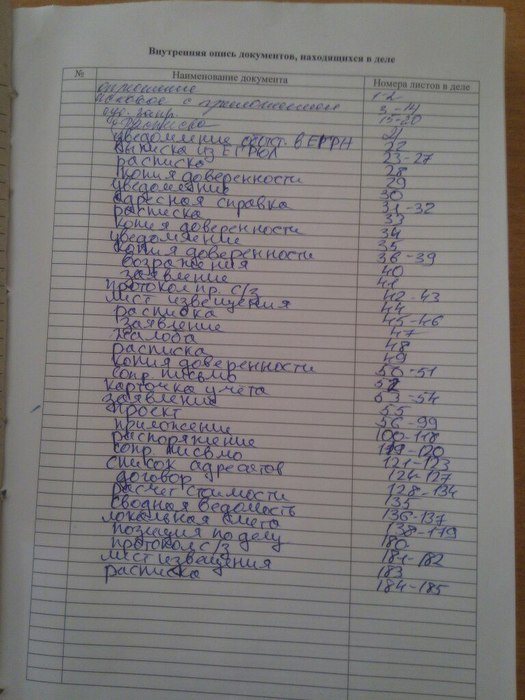 Внутренняя опись документов, находящихся в деле
№ Наименование документа Номера листов в деле
1-2
исковое с приложением 3-14
суд. запр. 15-20
расписка 21
уведомление отсут. в ЕГРН 22
выписка из ЕГРЮЛ 23-27
расписка 28
копия доверенности 29
уведомление 30
адресная справка 31-32
расписка 33
копия доверенности 34
уведомление 35
копия доверенности 36-39
возражения 40
заявление 41
протокол пр. с/з 42-43
лист извещения 44
расписка 45-46
заявление 47
жалоба 48
расписка 49
копия доверенности 50-51
сопр письмо 52
карточка учёта 53-54
заявление 55
проект 56-99
приложение 100-118
распоряжение 119-120
сопр. письмо 121-123
список адресатов 124-127
договор 128-134
расчет стоимости 135
сводная ведомость 136-137
локальная смета 138-179
позиция по делу 180
протокол с/з 181-182
лист извещения 183
расписка 184-185